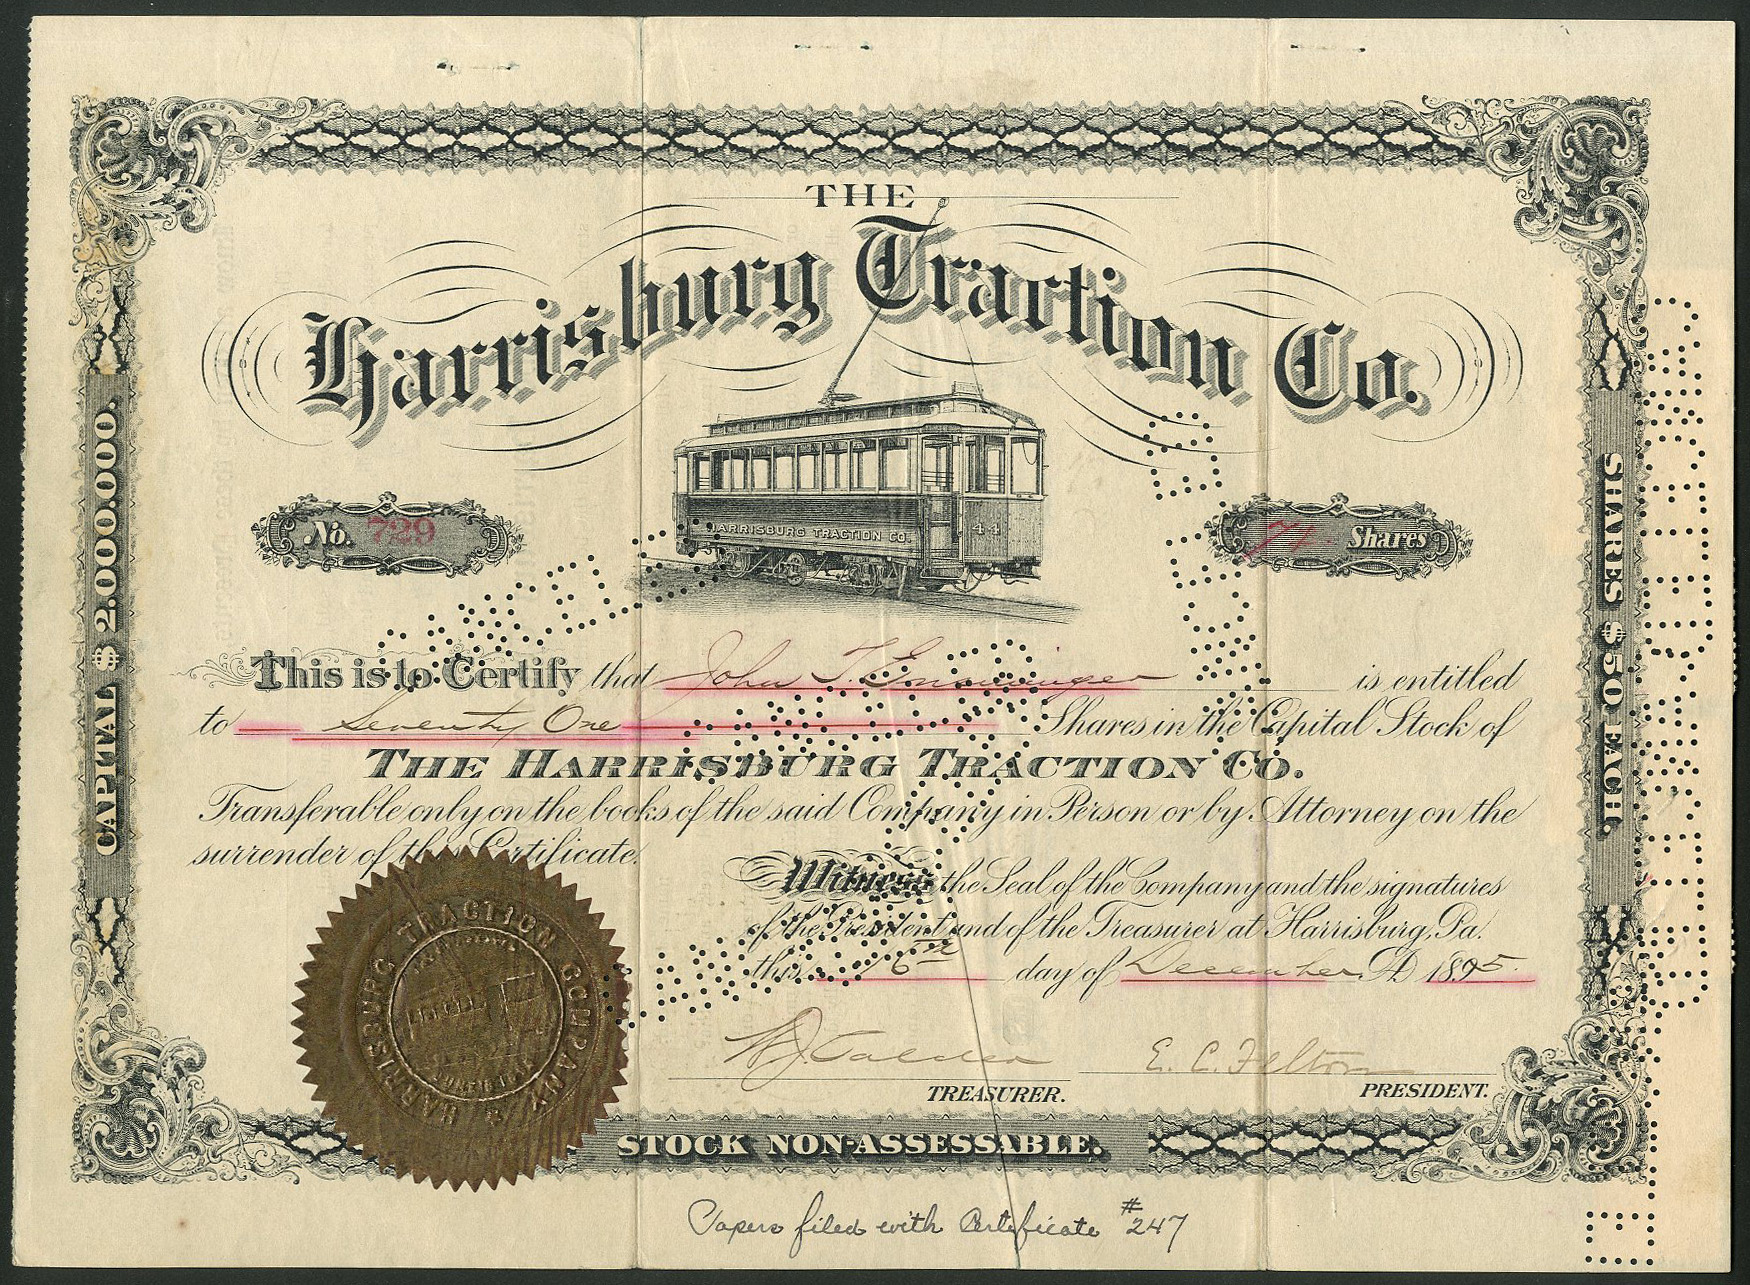 THE
Harrisburg Traction Co.
No. 729
HARRISBURG TRACTION CO.
44
71 Shares
CAPITAL $2.000.000.
SHARES $50 EACH.
This is to Certify that John T. Ensminger is entitled
to Seventy One Shares in the Capital Stock of
THE HARRISBURG TRACTION CO.
Transferable only on the books of the said Company in Person or by Attorney on the
surrender of this Certificate.
Witness the Seal of the Company and the signatures
of the President and of the Treasurer at Harrisburg, Pa.
this 16th day of December AD 1895.
HARRISBURG TRACTION COMPANY
E. C. Felton
TREASURER.
PRESIDENT.
STOCK NON-ASSESSABLE.
Papers filed with Certificate #247
CANCELLED